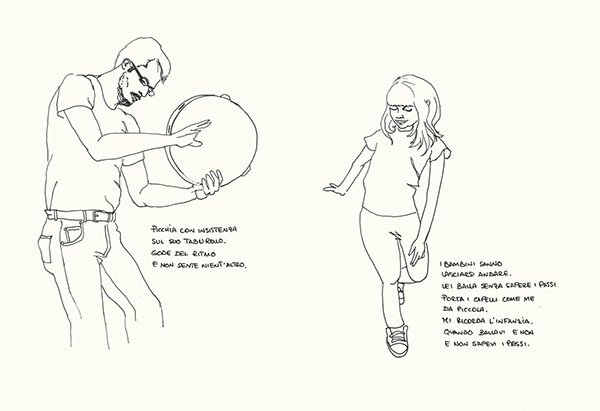 PICCHIA CON INSISTENZA
SUL SUO TABURELLO.
GODE DEL RITMO
E NON SENTE NIENT'ALTRO.
I BAMBINI SANNO
LASCIARSI ANDARE.
LEI BALLA SENZA SAPERE I PASSI.
PORTA I CAPELLI COME ME
DA PICCOLA.
MI RICORDA L'INFANZIA.
QUANDO BALLAVI E NON
E NON SAPEVI I PASSI.